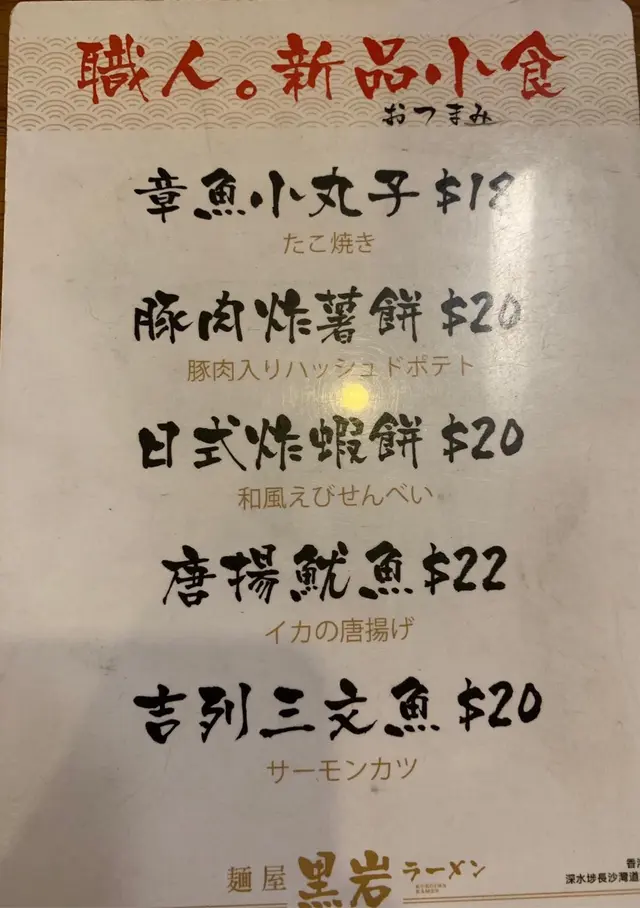 職人。新品小食
おつまみ
章魚小丸子 $18
たこ焼き
豚肉炸薯餅 $20
豚肉入りハッシュドポテト
日式炸蝦餅 $20
和風えびせんべい
唐揚魷魚 $22
イカの唐揚げ
吉列三文魚 $20
サーモンカツ
麺屋 黒岩 ラーメン
KUROIWA RAMEN
香港
深水埗長沙灣道